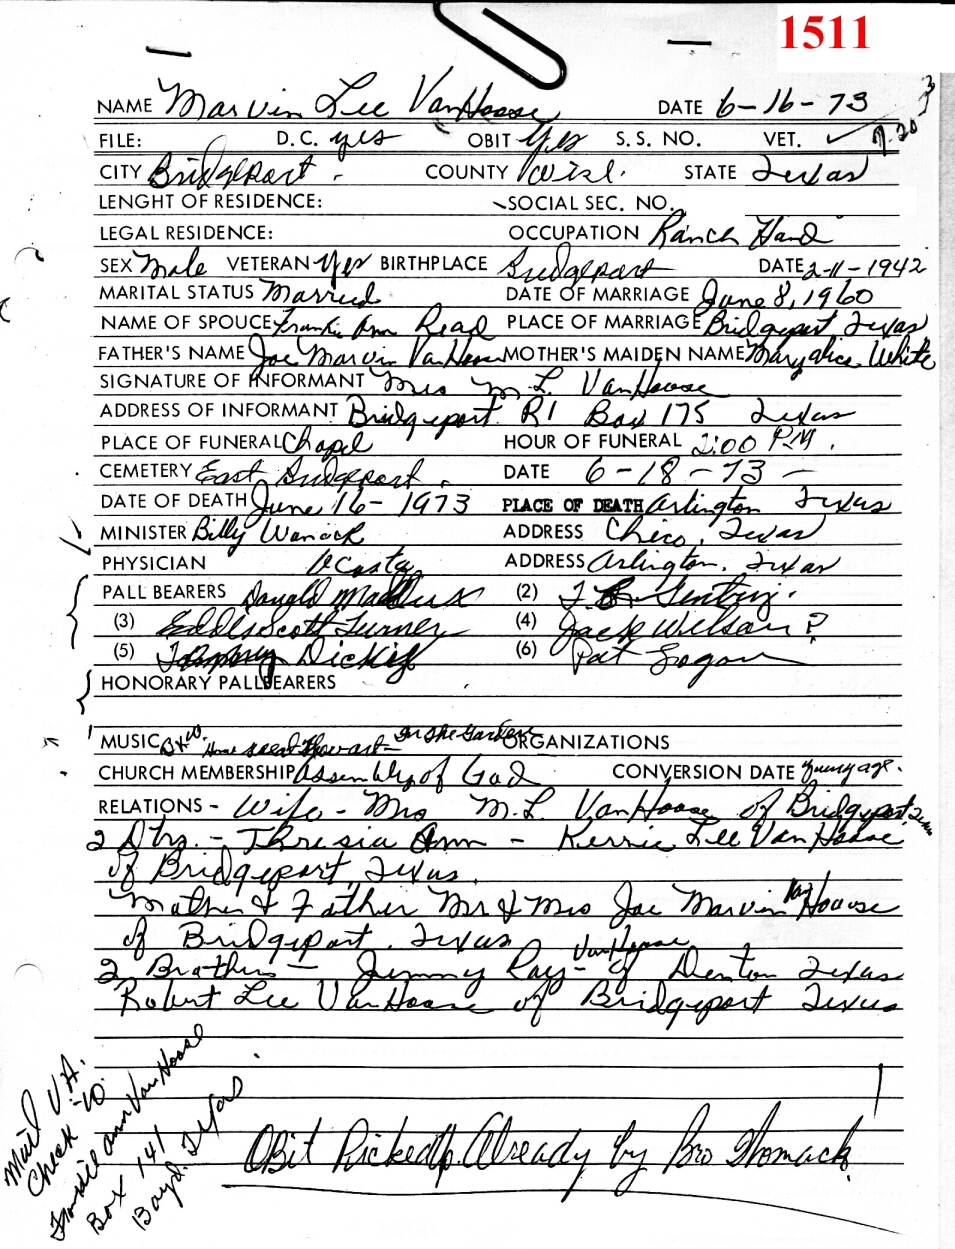 1511
NAME Marvin Lee VanHoose DATE 6-16-73
FILE: D.C. yes OBIT yes S.S. NO. VET. ✓
CITY Bridgeport. COUNTY Wise. STATE Texas
LENGHT OF RESIDENCE: SOCIAL SEC. NO.
LEGAL RESIDENCE: OCCUPATION Ranch Hand
SEX Male VETERAN yes BIRTHPLACE Bridgeport DATE 2-11-1942
MARITAL STATUS Married DATE OF MARRIAGE June 8, 1960
NAME OF SPOUCE Frankie Ann Read PLACE OF MARRIAGE Bridgeport, Texas
FATHER'S NAME Joe Marvin VanHoose MOTHER'S MAIDEN NAME Mary Alice White
SIGNATURE OF INFORMANT Mrs M.L. VanHoose
ADDRESS OF INFORMANT Bridgeport R1 Box 175 Texas
PLACE OF FUNERAL Chapel HOUR OF FUNERAL 2:00 P.M.
CEMETERY East Bridgeport. DATE 6-18-73-
DATE OF DEATH June 16-1973 PLACE OF DEATH Arlington Texas
MINISTER Billy Womack ADDRESS Chico, Texas
PHYSICIAN ADDRESS Arlington, Texas
PALL BEARERS Donald Maddux (2) Gentry.
(3) Scott Turner (4) Jack Wilson?
(5) Dickie (6) Pat Logan
HONORARY PALLBEARERS
MUSIC In The Garden ORGANIZATIONS
CHURCH MEMBERSHIP Assembly of God CONVERSION DATE young age.
RELATIONS - Wife - Mrs M.L. VanHoose of Bridgeport Texas
2 Dtrs. - Thresia Ann - Kerrie Lee VanHoose
of Bridgeport, Texas.
Mother & Father Mr & Mrs Joe Marvin Van Hoose
of Bridgeport, Texas
2 Brothers - Jimmy Ray - VanHoose of Denton Texas
Robert Lee VanHoose of Bridgeport Texas
Mail V.A.
Check to
Ann Van Hoose
Box 141
Boyd, Texas
Obit Picked Up Already by Bro Womack!